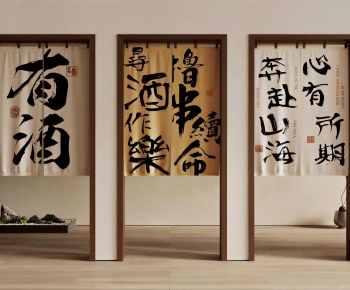 有酒
尋酒作樂
擼串續命
奔赴山海
心有所期